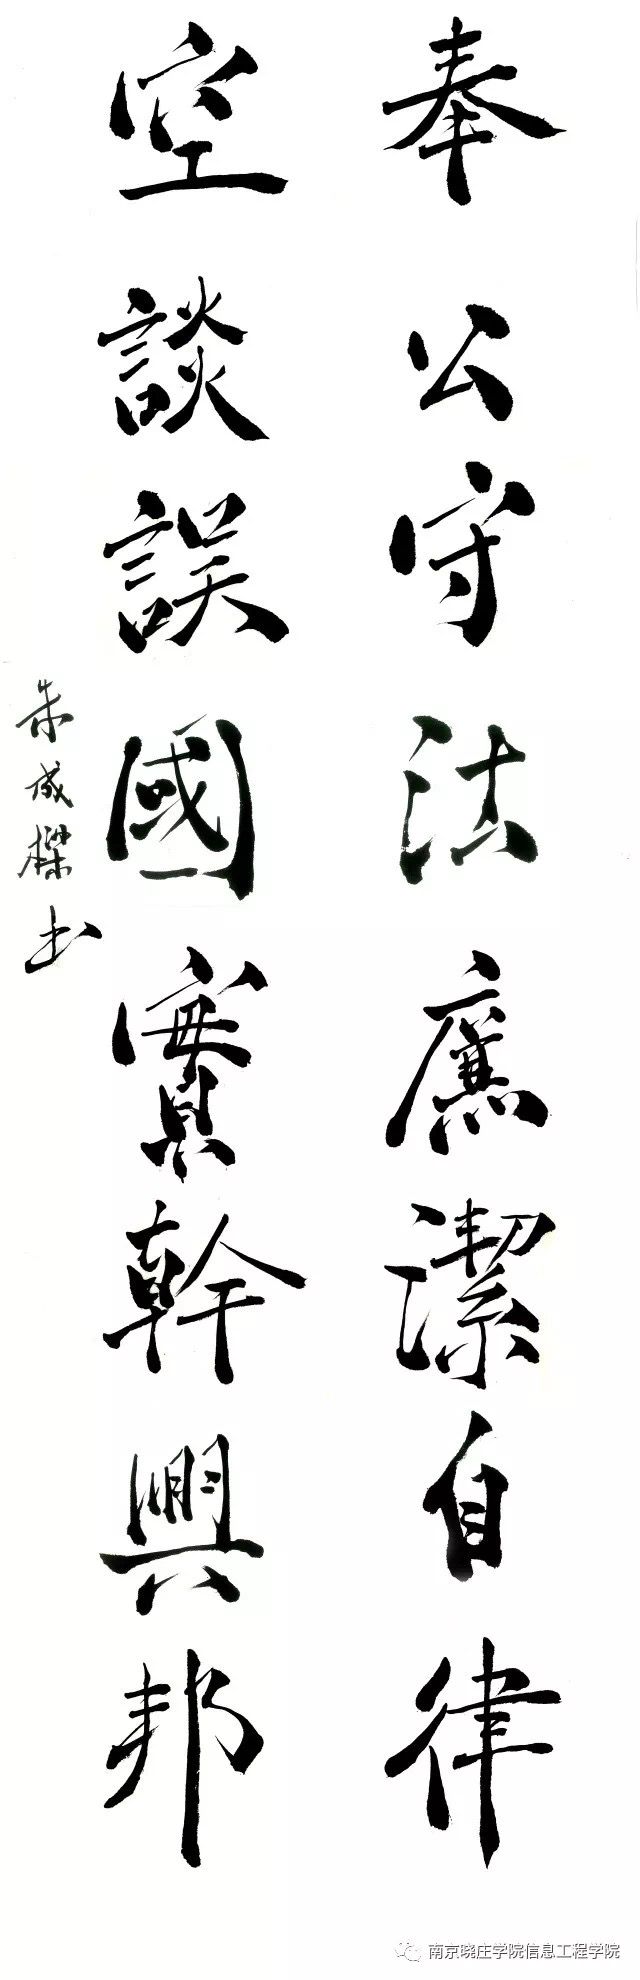 奉公守法廉潔自律
空談誤國實幹興邦
朱成樑书
南京晓庄学院信息工程学院